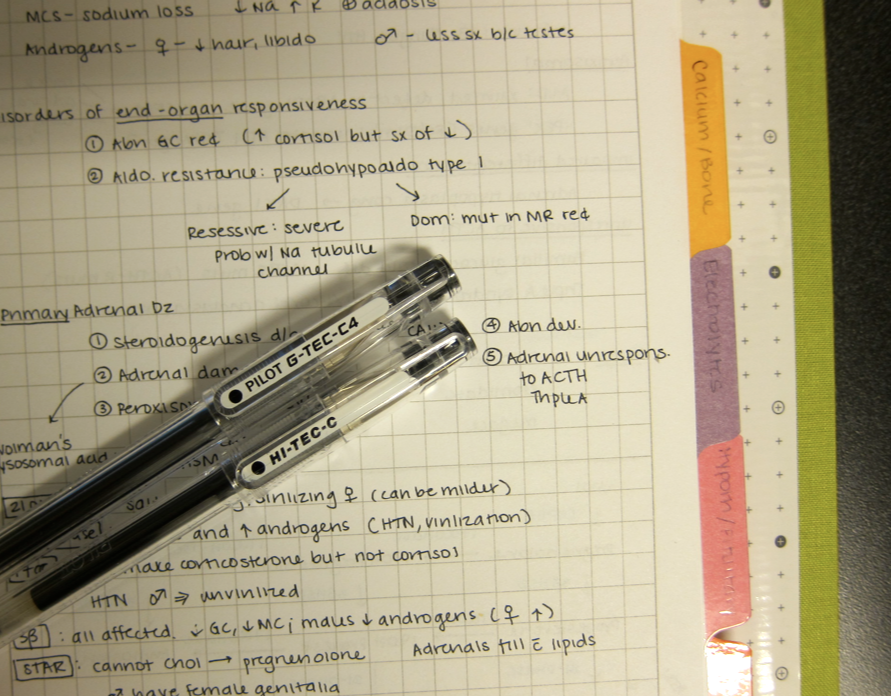 MCS- sodium loss ↓Na ↑K ⊕acidosis
Androgens- ♀ - ↓ hair, libido ♂ - less sx b/c testes
isorders of end-organ responsiveness
① Abn GC rec (↑ cortisol but sx of ↓)
② Aldo. resistance: pseudohypoaldo type 1
Resessive: severe
prob w/ Na tubule
channel
Dom: mut in MR rec
Primary Adrenal Dz
① Steroidogenesis d/o
② Adrenal dam
③ Peroxiso
④ Abn dev.
⑤ Adrenal unrespons.
to ACTH
Triple A
wolman's
ysosomal acid
PILOT G-TEC-C4
HI-TEC-C
virilizing ♀ (can be milder)
and ↑ androgens (HTN, virilization)
make corticosterone but not cortisol
HTN ♂ ⇒ unvirilized
3β : all affected. ↓ GC, ↓MC; males ↓ androgens (♀ ↑)
STAR: cannot chol → pregnenolone Adrenals fill c̄ lipids
♂ have female genitalia
Calcium/Bone
Electrolytes